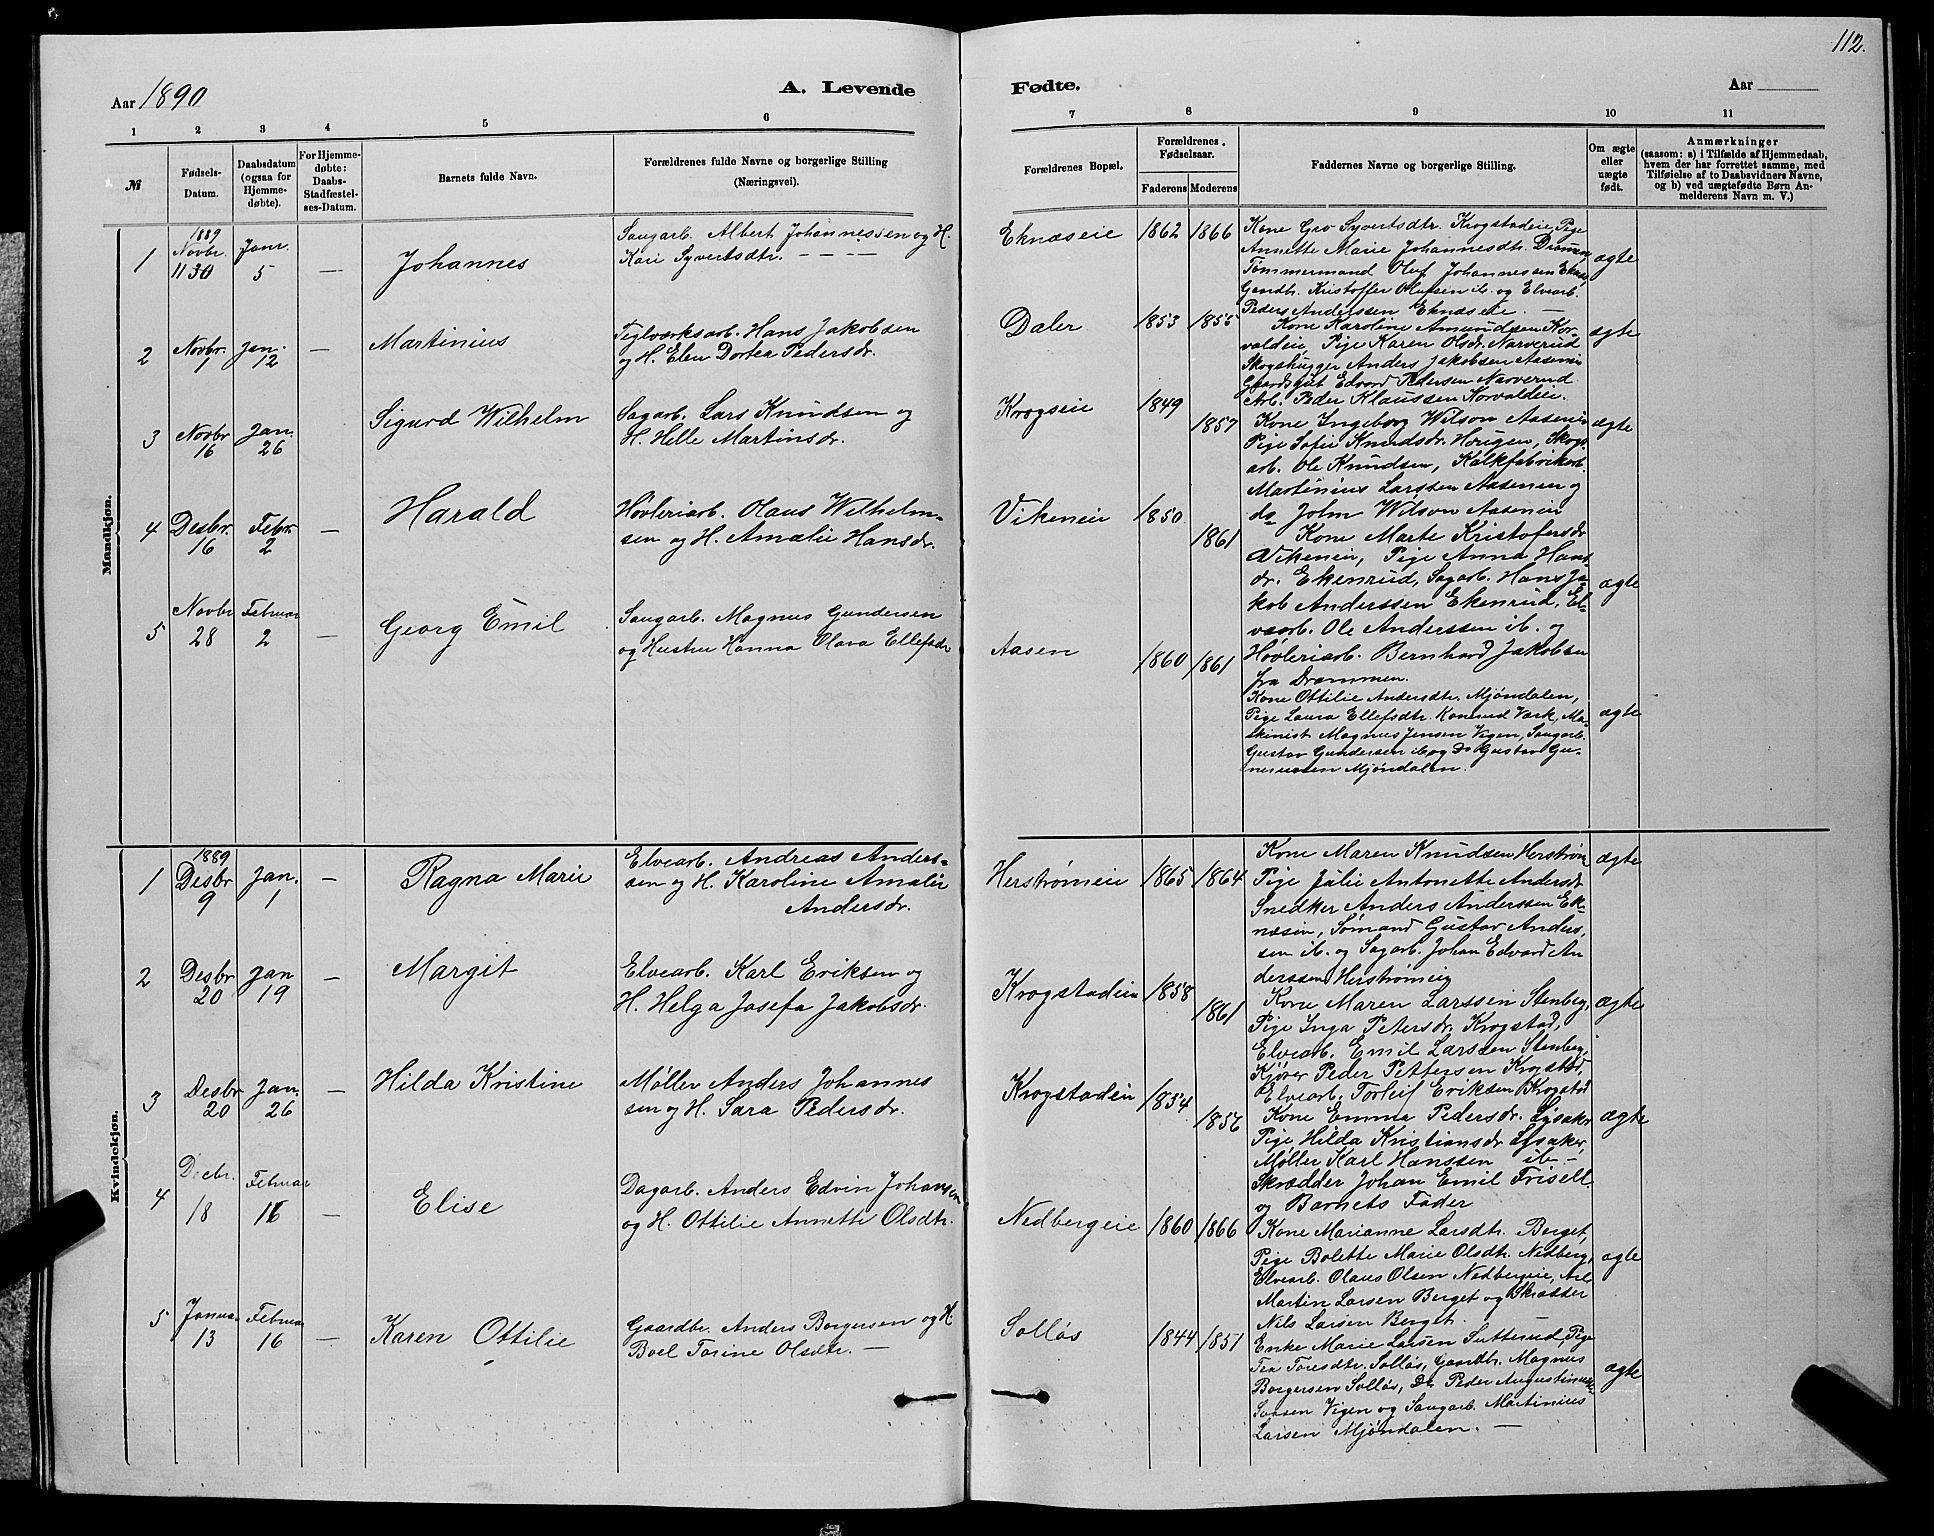 112.
Aar 1890
A. Levende
Fødte.
Aar
1 2 3 4 5 6
7 8 9 10 11
№
Fødsels-
Datum.
Daabsdatum
(ogsaa for
Hjemme-
døbte).
For Hjemme-
døbte:
Daabs-
Stadfæstel-
ses-Datum.
Barnets fulde Navn.
Forældrenes fulde Navne og borgerlige Stilling
(Næringsvei).
Forældrenes Bopæl.
Forældrenes
Fødselsaar.
Faderens Moderens
Faddernes Navne og borgerlige Stilling.
Om ægte
eller
uægte
født.
Anmærkninger
(saasom: a) i Tilfælde af Hjemmedaab,
hvem der har forrettet samme, med
Tilføielse af to Daabsvidners Navne,
og b) ved uægtefødte Børn An-
melderens Navn m. V.)
Mandkjøn.
1
1889
Novbr.
11 30
Janr.
5
—
Johannes
Saugarb. Albert Johannessen og H.
Kari Syvertsdtr. — — — —
Eknæseie
1862 1866
Kone Gro Syvertsdtr. Krogstadeie, Pige
Annette Marie Johannesdtr. Drammen,
Tømmermand Oluf Johannessen Eknæs,
Gaardbr. Kristoffer Olafsen ib. og Elvearb.
Peder Anderssen Eknæseie. —
ægte
2
Novbr.
1
Jan.
12
—
Martinius
Teglværksarb. Hans Jakobsen
og H. Elen Dortea Pedersdr.
Daler
1853 1855
Kone Karoline Amundsen Kor-
valdeie, Pige Karen Olsdr. Narverud
Skogshugger Anders Jakobsen Aasenei
Gaardsgut Edvard Pedersen Narverud
Arb. Peder Klaussen Korvaldeie.
ægte
3
Novbr
16
Jan.
26
—
Sigurd Wilhelm
Sagarb. Lars Knudsen og
H. Helle Martinsdr.
Krogseie
1849
1857
Kone Ingeborg Wilson Aasenei
Pige Sofie Knudsdr. Haugen, Skogs-
arb. Ole Knudsen, Kalkfabrikarb.
Martinius Larssen Aasenei og
do John Wilson Aasenei
ægte
4
Desbr.
16
Febr.
2
—
Harald
Høvleriarb. Olaus Wilhelm-
sen og H. Amalie Hansdr.
Vikeneie
1850
1861
Kone Marte Kristofersdr
Vikenein, Pige Anna Hans-
dr. Ekenrud, Sagarb. Hans Ja-
kob Anderssen Ekenrud, El-
vearb. Ole Anderssen ib. og
Høvleriarb. Bernhard Jakobsen
fra Drammen.
ægte
5
Novbr
28
Februar
2
—
Georg Emil
Saugarb. Magnus Gundersen
og Hustru Hanna Olava Ellefsdr
Aasen
1860 1861
Kone Ottilie Andersdtr. Mjøndalen,
Pige Laura Ellefsdtr. Konnerud Værk, Ma-
skinist Magnus Jensen Vigen, Saugarb.
Gustav Gundersen ib. og do Gustav Gu-
Mjøndalen.
ægte
Kvindekjøn.
1
1889
Desbr
9
Jan.
1
—
Ragna Marie
Elvearb. Andreas Anders-
sen og H. Karoline Amalie
Andersdr.
Herstrømeie
1865 1864
Kone Maren Knudsen Herstrøm
Pige Julie Antonette Andersdr
Snedker Anders Anderssen Ek-
næsein, Sømand Gustav Anders-
sen ib. og Sagarb. Johan Edvard An
derssen Herstrømeie
ægte
2
Desbr
20
Jan
19
—
Margit
Elvearb. Karl Eriksen og
H. Helga Josefa Jakobsdr.
Krogstadein
1858
1861
Kone Maren Larssen Stenberg,
Pige Inga Petersdr. Krogstad,
Elvearb. Emil Larssen Stenberg,
Kjører Peder Pettersen Krogstad,
Elvearb. Torleif Eriksen Krogstad
ægte
3
Desbr
20
Jan.
26
—
Hilda Kristine
Møller Anders Johannes
sen og H. Sara Pedersdr.
Krogstadein
1854
1856
Kone Emma Pedersdr. Lysaker
Pige Hilda Kristiansdr Lysaker,
Møller Karl Hanssen ib. —
Skrædder Johan Emil Frisell
og Barnets Fader
ægte
4
Decbr.
18
Februar
16
—
Elise
Dagarb. Anders Edvin Johansen
og H. Ottilie Annette Olsdtr.
Nedbergeie
1860 1866
Kone Marianne Larsdtr. Berget,
Pige Bolette Marie Olsdtr. Nedberg,
Elvearb. Olaus Olsen Nedbergeie, Arb.
Martin Larsen Berget og Skrædder
Nils Larsen Berget.
ægte
5
Januar
13
Februar
16
—
Karen Ottilie
Gaardbr. Anders Borgersen og H
Boel Torine Olsdtr. —
Solløs
1844 1851
Enke Marie Larsen Sutterud, Pige
Tea Toresdtr. Solløs, Gaardbr. Magnus
Borgersen Solløs, Do Peder Augustinus
Larsen Vigen og Saugarb. Martinius
Larsen Mjøndalen. —
ægte